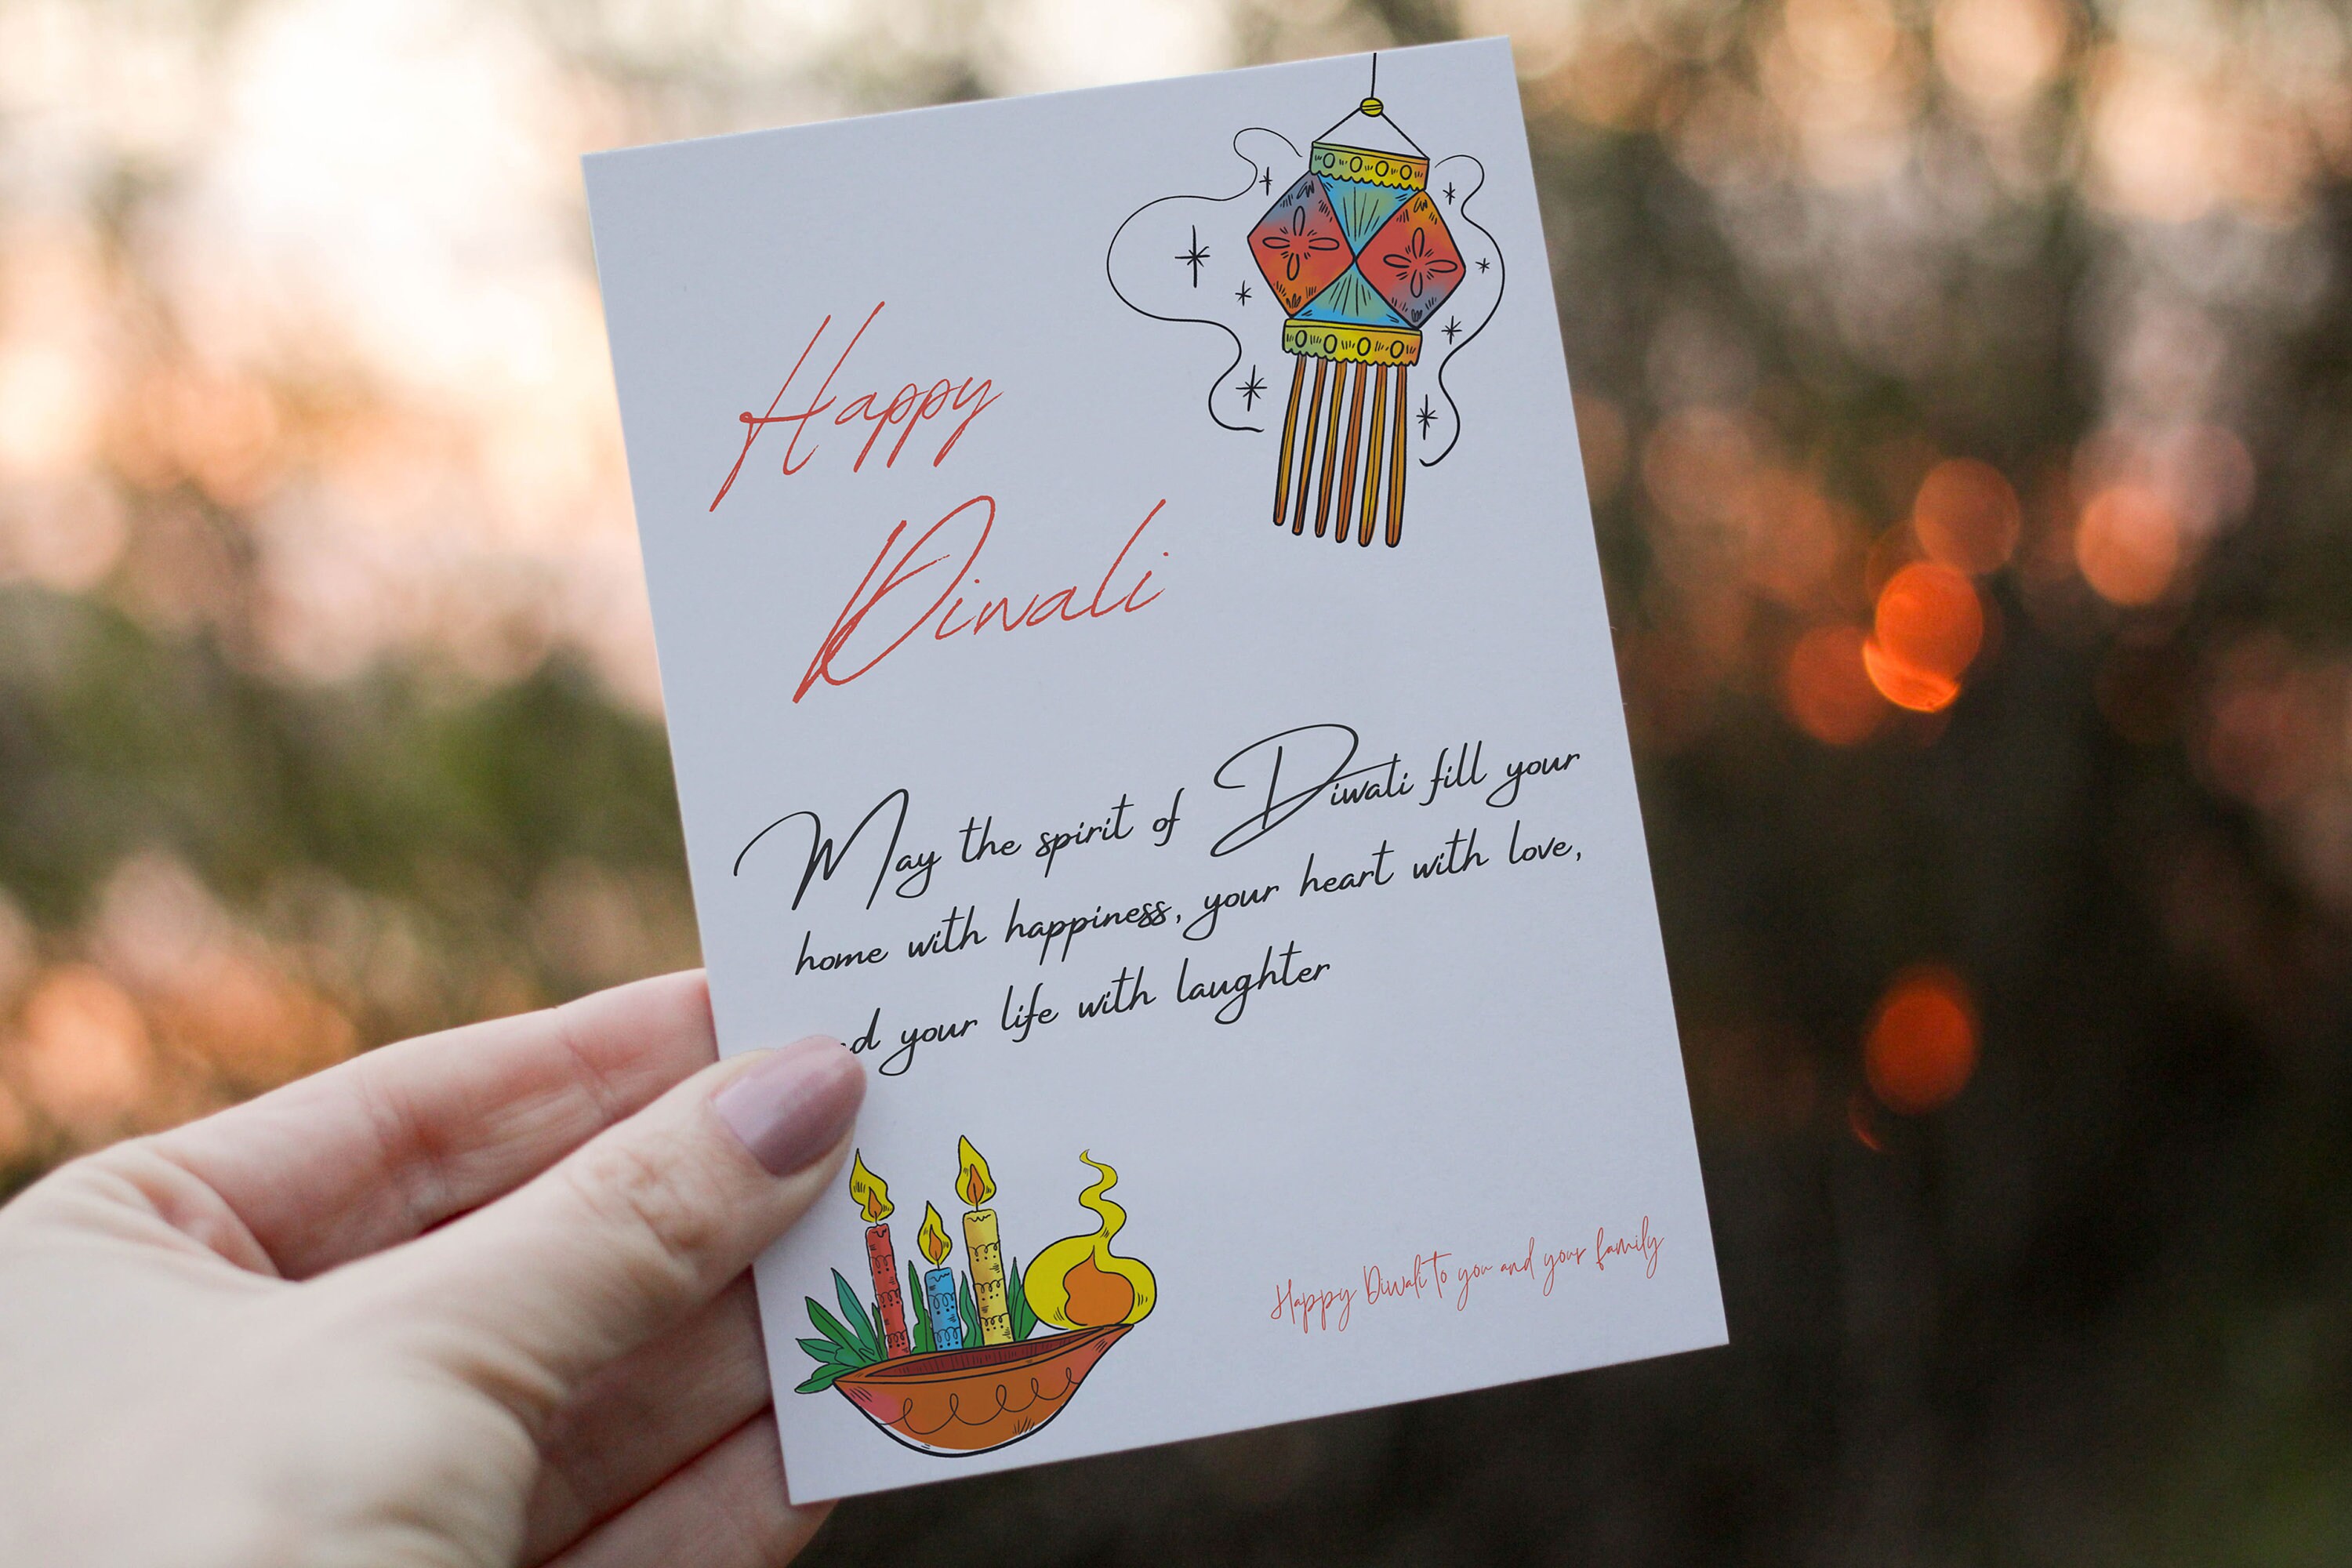 Happy
Diwali
May the spirit of Diwali fill your
home with happiness, your heart with love,
nd your life with laughter
Happy Diwali to you and your family